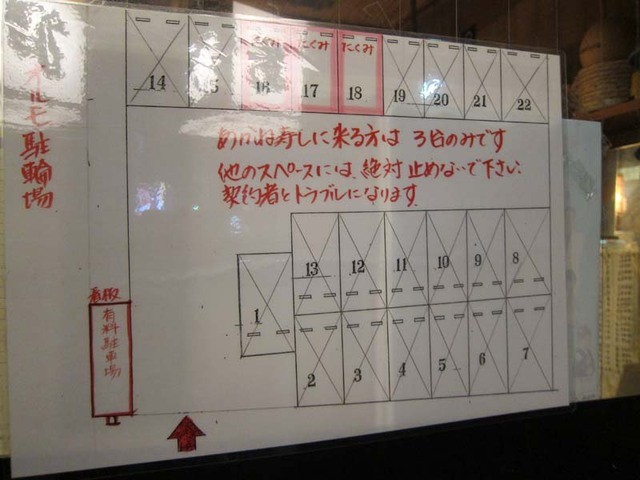 オルモ駐輪場
たくみ たくみ たくみ
14 15 16 17 18 19 20 21 22
あかね寿しに来る方は 3台のみです
他のスペースには、絶対止めないで下さい.
契約者とトラブルになります.
13 12 11 10 9 8
1
2 3 4 5 6 7
看板
有料駐車場